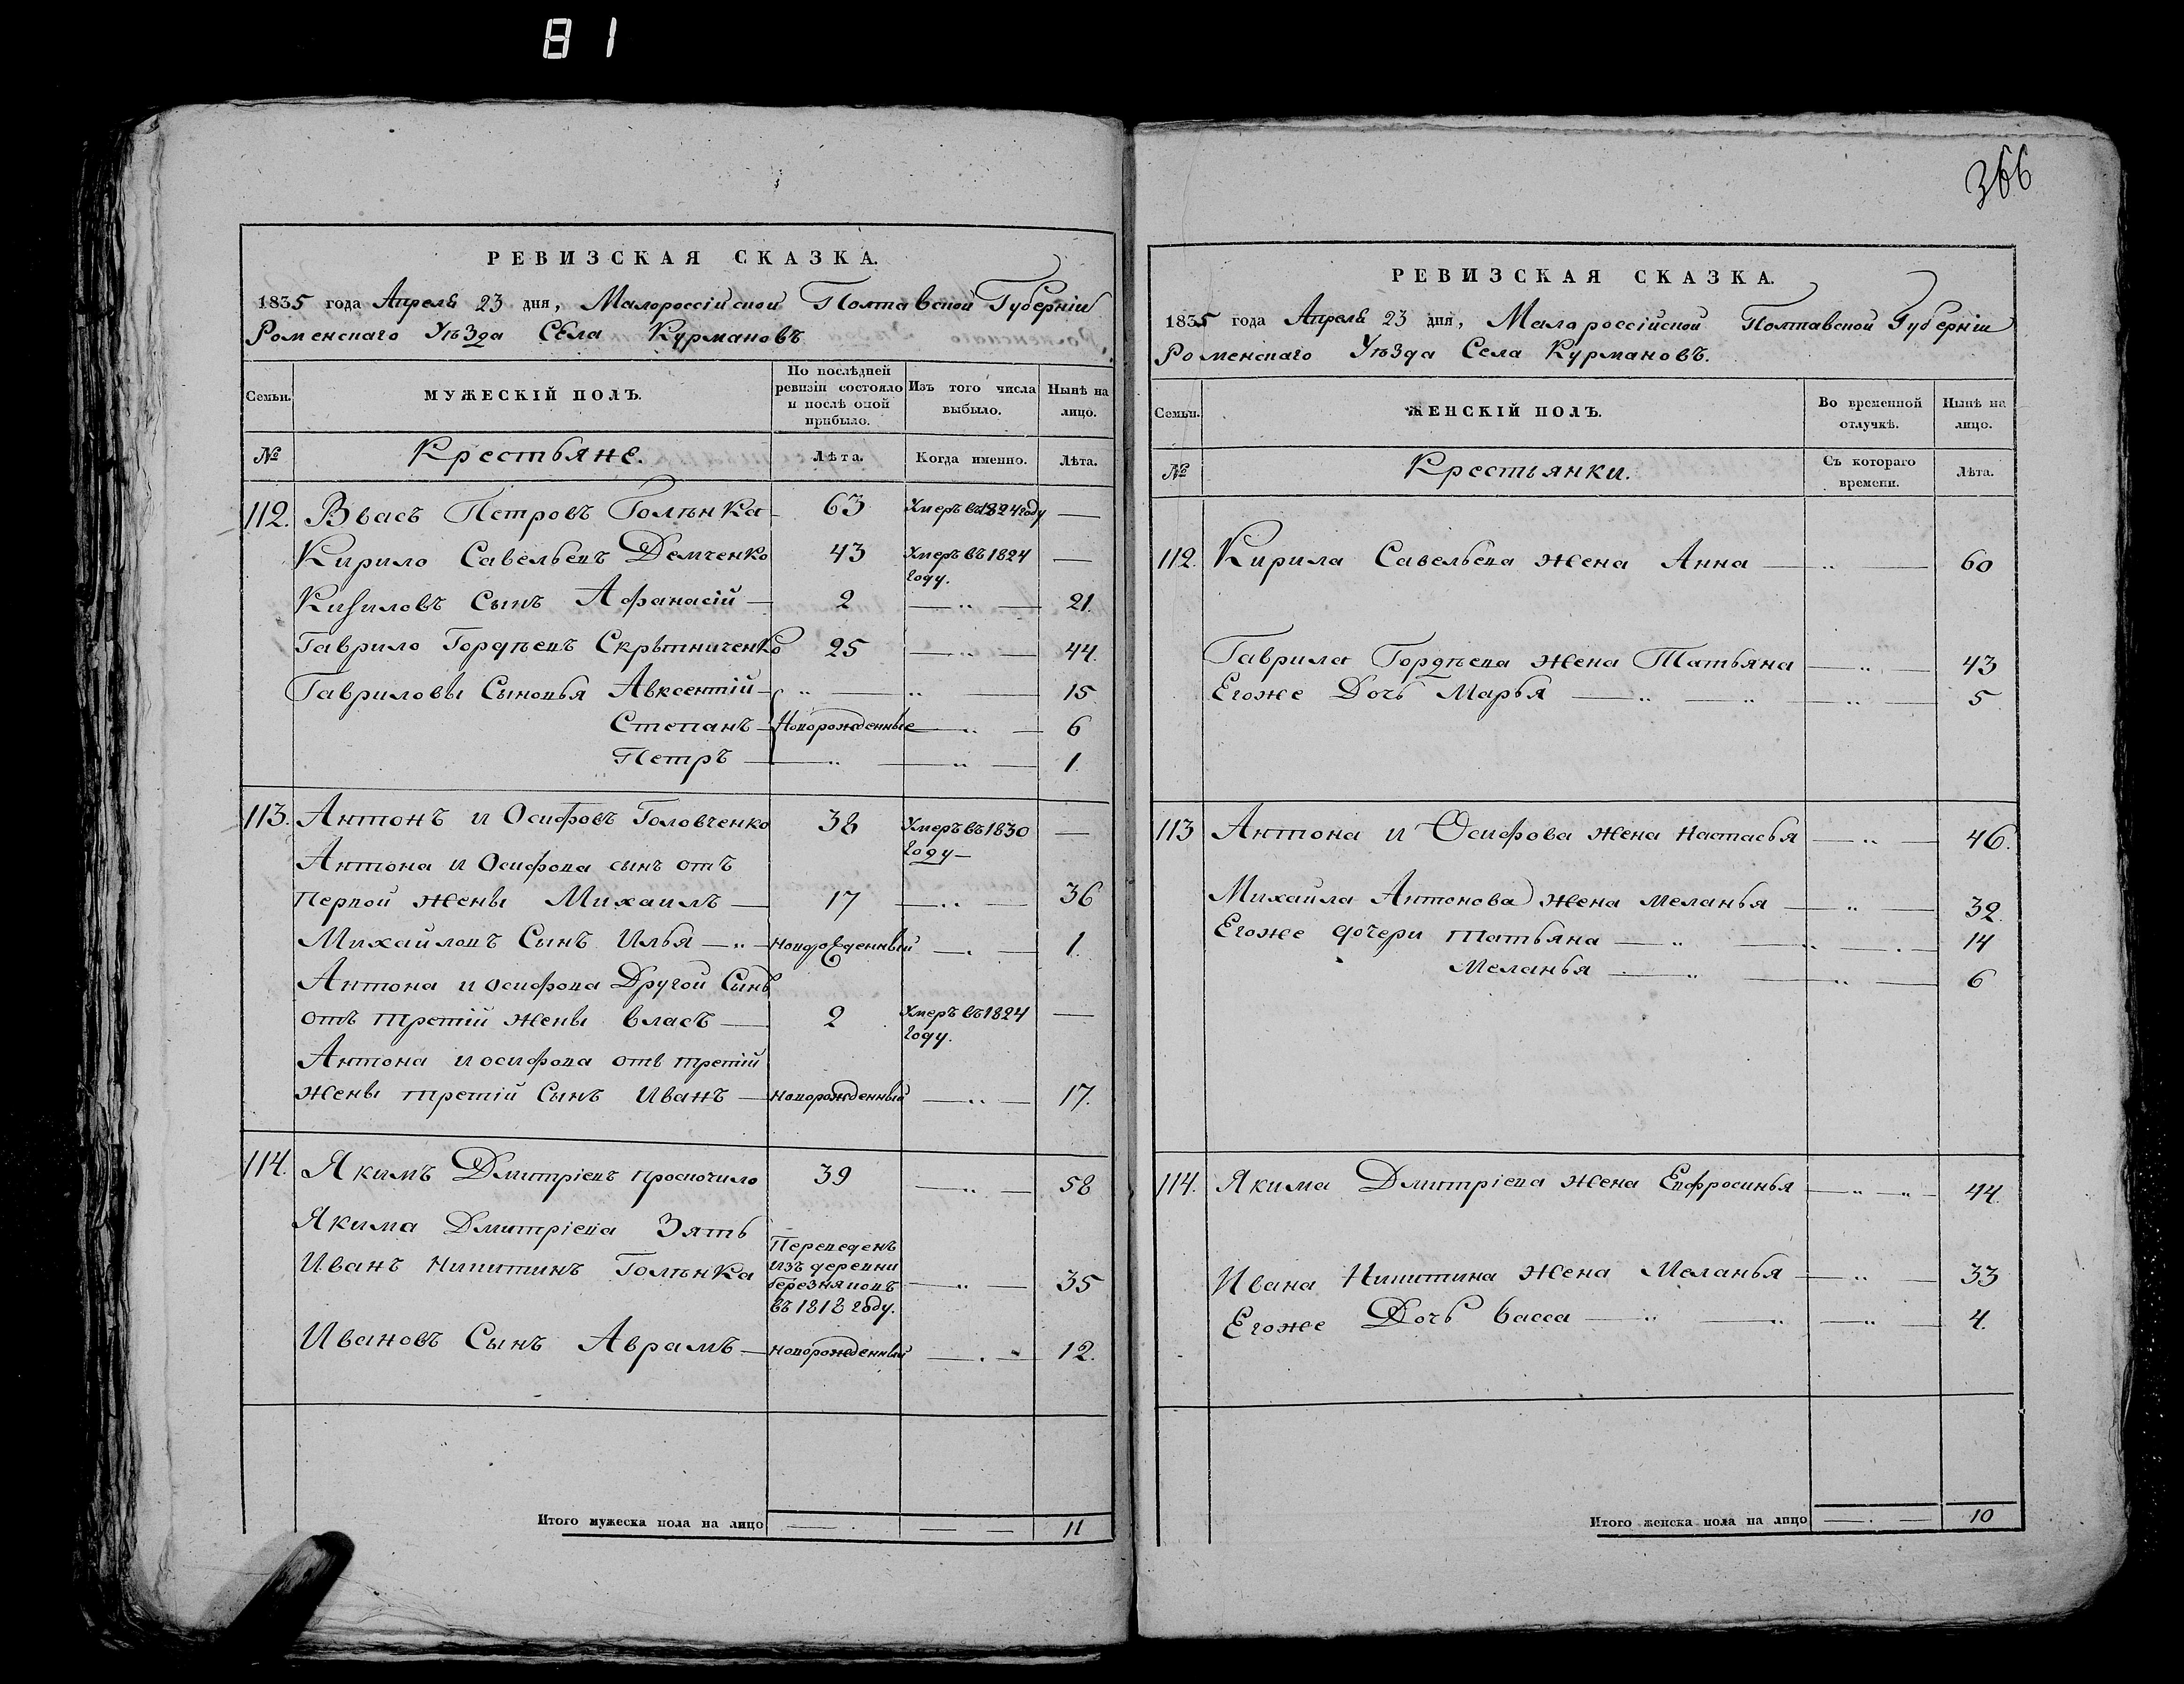 81
366
РЕВИЗСКАЯ СКАЗКА.
1835 года Апреля 23 дня, Малороссійской Полтавской Губерніи
Роменскаго Уѣзда Села Курмановъ
Семьи. МУЖЕСКІЙ ПОЛЪ. По послѣдней ревизіи состояло и послѣ оной прибыло. Изъ того числа выбыло. Нынѣ на лицо.
№ Крестьяне. Лѣта. Когда именно. Лѣта.
112. Власъ Петровъ Голѣнка 63 Умеръ въ 1824 году —
Кирило Савельевъ Демченко 43 Умеръ въ 1824 году. —
Кириловъ Сынъ Афанасій — 2 — „ — 21.
Гаврило Гордѣевъ Скрѣтниченко 25 — „ — 44.
Гавриловы Сыновья Авксентій — „ — „ — 15
Степанъ — Новорожденные — „ — 6
Петръ — „ — „ — 1.
113. Антонъ и Осифовъ Головченко 38 Умеръ въ 1830 году — —
Антона и Осифова сынъ отъ
первой жены Михаилъ — 17 — „ — 36
Михайловъ Сынъ Илья — „ — новорожденный — „ — 1.
Антона и осифова Другой Сынъ
отъ третій жены власъ — 2 Умеръ въ 1824 году. —
Антона и осифова отъ третій
жены третій Сынъ Иванъ — новорожденный — „ — 17.
114. Якимъ Дмитріевъ просочило 39 — „ — 58
Якима Дмитріева Зять
Иванъ Никитинъ Голѣнка Переведенъ изъ деревни березняковъ въ 1818 году. — „ — 35
Ивановъ Сынъ Аврамъ — новорожденный — „ — 12.
Итого мужеска пола на лицо — — — 11
РЕВИЗСКАЯ СКАЗКА.
1835 года Апреля 23 дня, Малороссійской Полтавской Губерніи
Роменскаго Уѣзда Села Курмановъ.
Семьи. ЖЕНСКІЙ ПОЛЪ. Во временной отлучкѣ. Нынѣ на лицо.
№ Крестьянки. Съ котораго времени. Лѣта.
112. Кирила Савельева жена Анна — „ — 60
Гаврила Гордѣева жена Татьяна — „ — 43
Егоже Дочь Марья — „ — „ — „ — 5
113 Антона и Осифова жена настасья — „ — 46.
Михаила Антонова жена меланья — „ — 32.
Егоже дочери татьяна — „ — „ — 14
меланья — „ — „ — 6
114. Якима Дмитріева жена Ефросинья — „ „ — 44.
Ивана Никитина жена Меланья — „ — 33
Егоже Дочь васса — „ — „ — „ — 4.
Итого женска пола на лицо — — 10